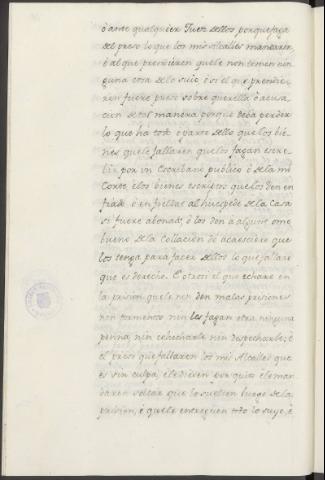 ò ante qualquier Juez dellos porque faga
del preso lo que los mis Alcalles mandaren,
ò al que prendieren quele non tomen nin
guna cosa de lo suio, ò si el que prendie-
ren fuere preso sobre querella ò acusa
cion de tal manera porque deba perder
lo que ha todo ò parte dello que los bie
nes quele fallaren quelos façan escre
bir por un Escribano público ò de la mi
Corte, è los bienes escriptos quelos den en
fiado ò en fieldat al huespede de la Casa
si fuere abonado, ò los den à algunt ome
bueno de la Collacion do acaesciere que
los tenga para facer dellos lo que fallare
que es derecho. E otrosi el que echaren en
la prision quele non den malas prisiones
non tormentos nin les façan otra ninguna
penna, nin cohecharle nin despecharle; è
el preso que fallaren los mis Alcalles que
es sin culpa, è le dieren por quito è le man
daren soltar que lo suelten luego de la
prision, è quele entreguen todo lo suyo, è